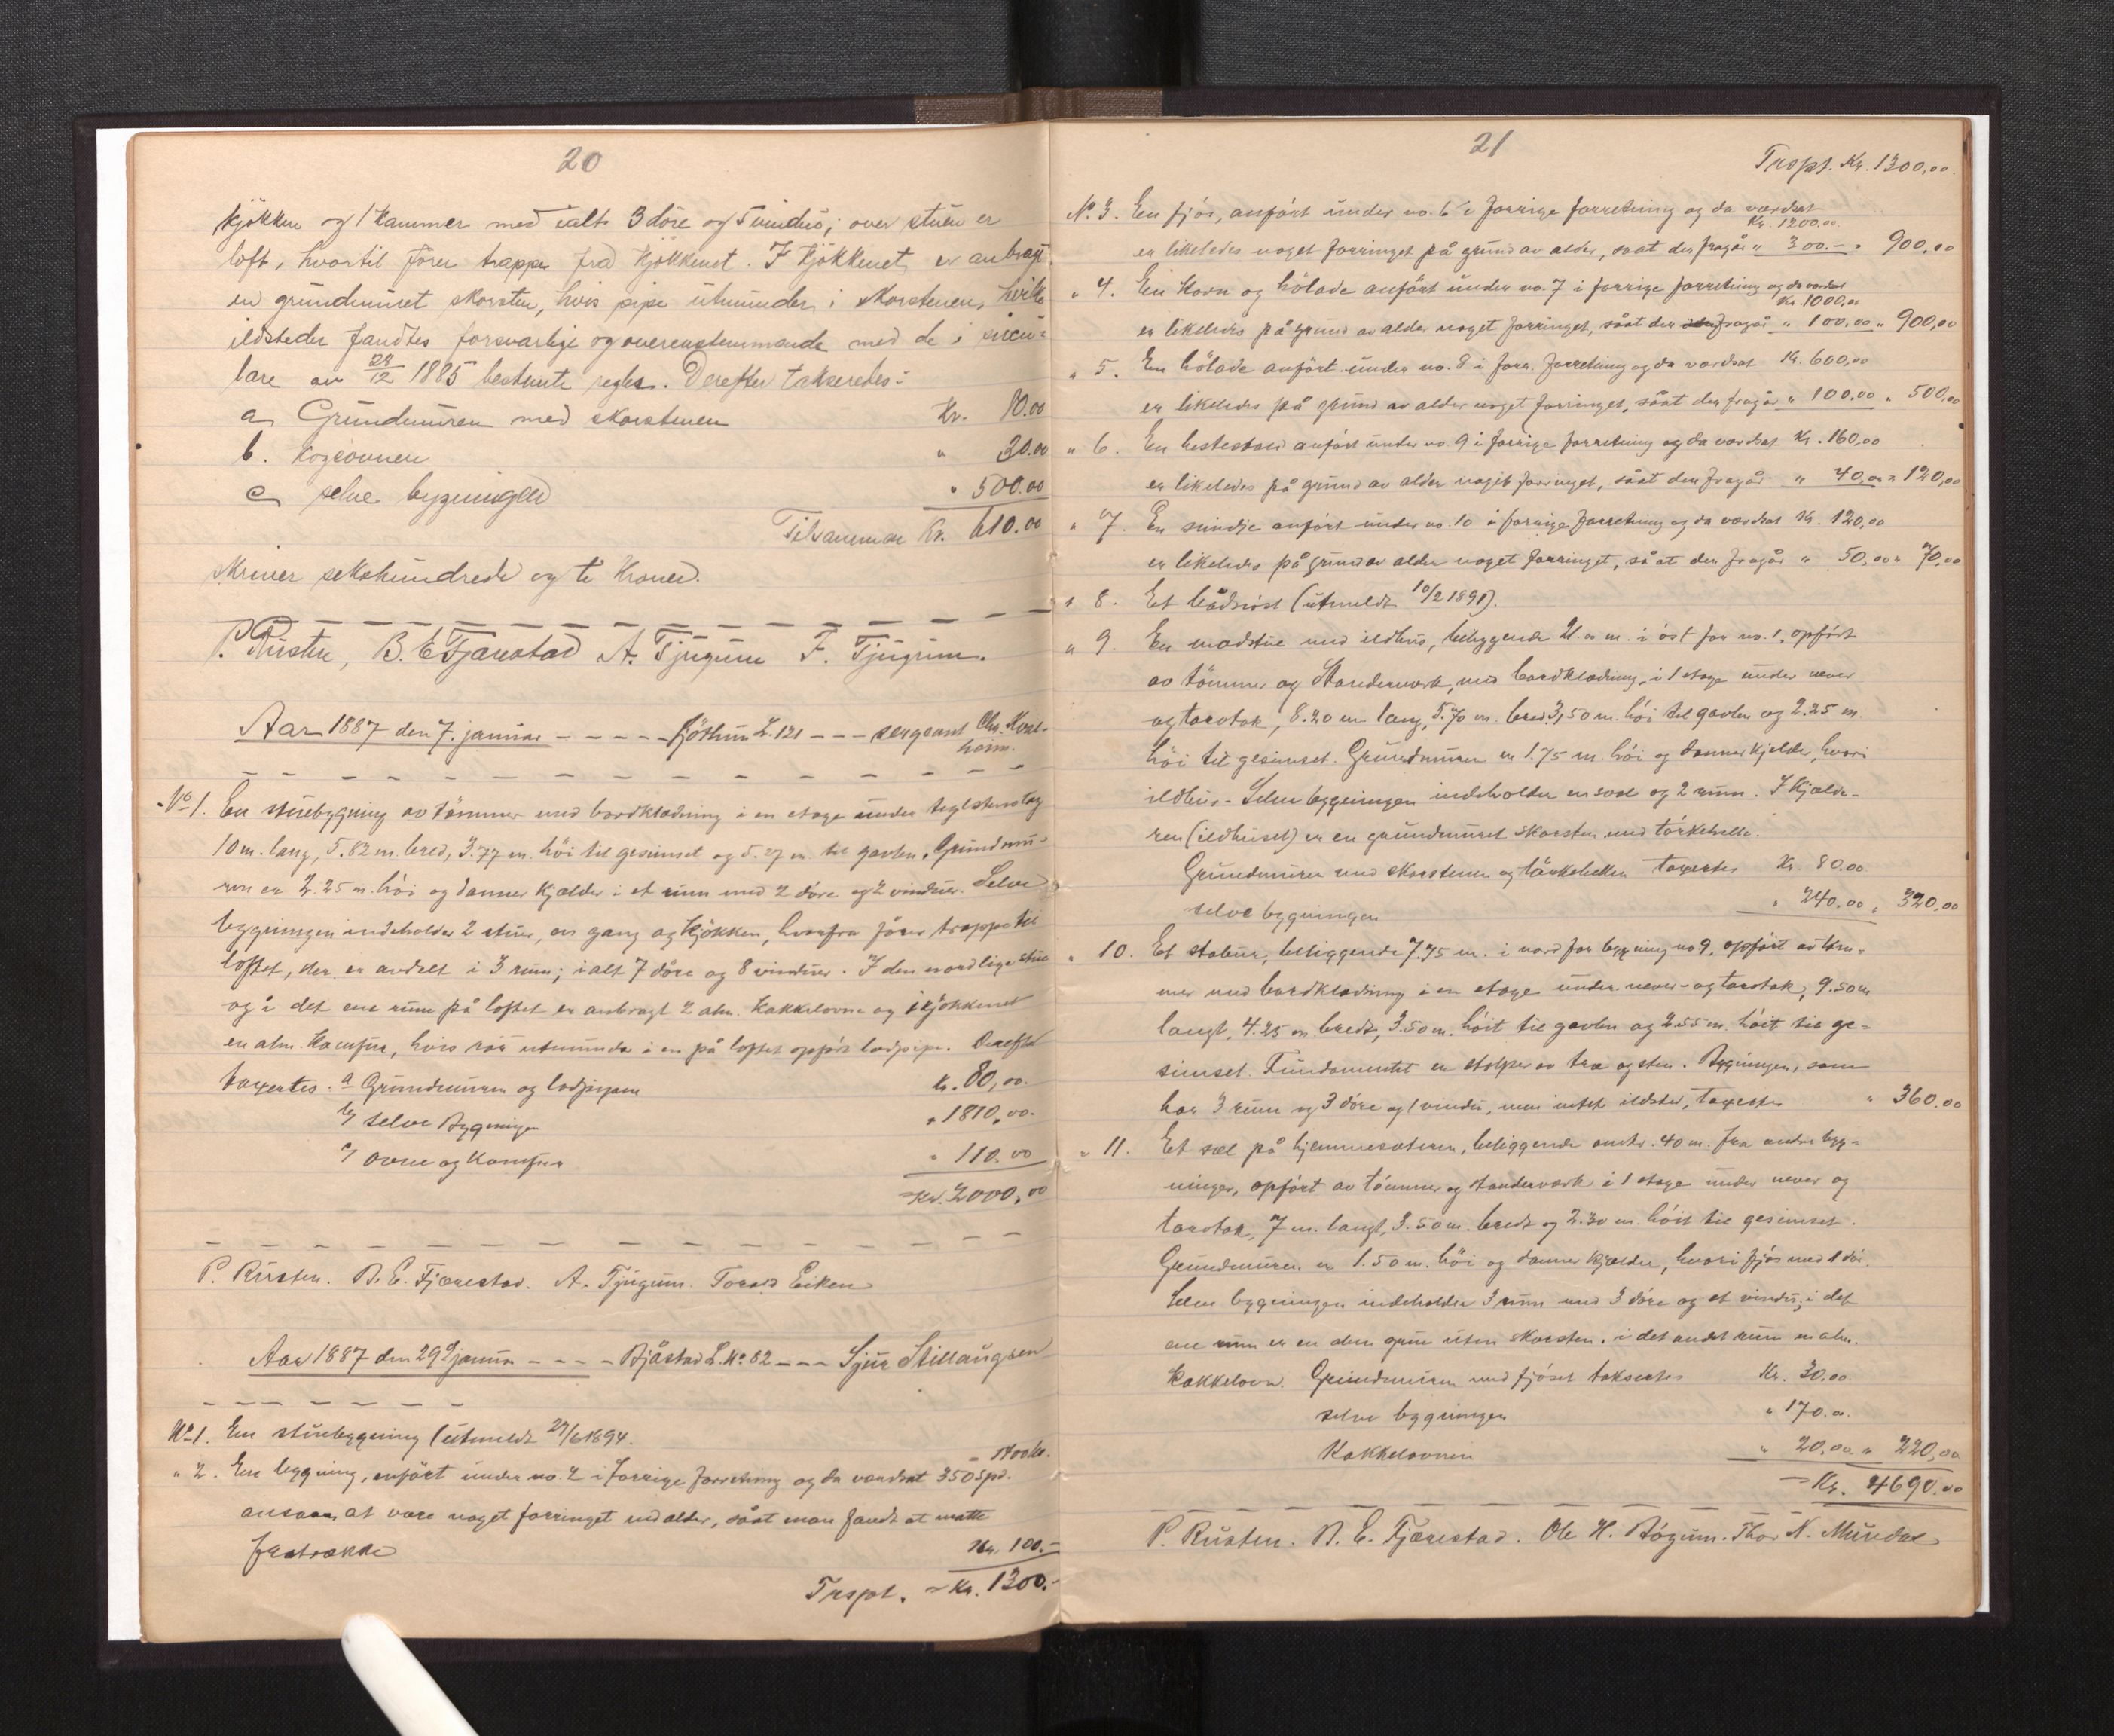 20
kjökken og 1 kammer med ialt 3 döre og 5 vinduer; over stuen er
loft, hvortil förer trappe fra kjökkenet. I kjökkenet er anbragt
en grundmuret skorsten, hvis pipe utmunder i skorstenen, hvilke
ildsteder fandtes forsvarlige og overensstemmende med de i circu-
lare av 24/12 1885 bestemte regler. Derefter takseredes:
a, Grundmuren med skorstenen Kr. 80.00
b. Kogeovnen " 30.00
c, selve bygningen " 500.00
Tilsammen Kr. 610.00
skriver sekshundrede og ti Kroner.
P. Rusten, B. E Fjærestad A. Tjugum F. Tjugum.
Aar 1887 den 7. januar - - - - - Fjörtun L. 121 - - - sergeant Ole Kval-
heim.
No 1. En stuebygning av tömmer med bordklædning i en etage under teglstenstag
10 m. lang, 5.82 m. bred, 3.77 m. höi til gesimset og 5.27 m. til gavlen. Grundmu-
ren er 2.25 m. höi og danner kjælder i et rum med 2 döre og 2 vinduer. Selve
bygningen indeholder 2 stuer, en gang og kjökken, hvorfra förer trappe til
loftet, der er avdelt i 3 rum; ialt 7 döre og 8 vinduer. I den nordlige stue
og i det ene rum på loftet er anbragt 2 alm. kakkelovne og i kjökkenet
en alm. komfur, hvis rör utmunder i en på loftet opfört lodpipe. Derefter
taxertes. a Grundmuren og lodpipen k. 80,00.
b, selve Bygningen " 1810,00.
c, ovne og Komfur " 110.00
Kr. 2000,00
P. Rusten. B. E. Fjærestad. A. Tjugum. Torald Eiken
Aar 1887 den 29de januar - - - - Bjåstad L. No. 82 - - - Sjur Stillaugsen
No 1. En stuebygning (utmeldt 27/6 1894.
" 2. En bygning, anfört under no. 2 i forrige forretning og da værdsat 350 Spd. = 1400 kr.
ansaaes at være noget forringet ved alder, såat man fandt at måtte
fratrække Kr. 100.-
Trspt. = Kr. 1300.-
21
Trspt. Kr. 1300,00.
No. 3. En fjös, anfört under no. 6 i forrige forretning og da værdsat
Kr. 1200.00
er likeledes noget forringet på grund av alder, saat der fragår " 300.- " 900,00
" 4. En Korn og hölade anfört under no. 7 i forrige forretning og da værdsat
Kr. 1000,00
er likeledes på grund av alder noget forringet, såat der fragår " 100.00 " 900,00
" 5. En hölade anfört under no. 8 i forr. forretning og da værdsat Kr. 600,00
er likeledes på grund av alder noget forringet, såat der fragår " 100.00 " 500,00
" 6. En hestestald anfört under no. 9 i forrige forretning og da værdsat Kr. 160,00
er likeledes på grund av alder noget forringet, såat der fragår " 40,00 " 120,00
" 7. En smidje anfört under no. 10 i forrige forretning og da værdsat Kr. 120,00
er likeledes på grund av alder noget forringet, så at der fragår " 50,00 " 70,00
" 8. Et bådnöst (utmeldt 10/2 1891).
" 9. En madstue med ildhus, beliggende 21 m. i öst for no. 1, opfört
av tömmer og Stenderverk, med bordklædning, i 1 etage under næver
og torvtak, 8.20 m lang, 5.70 m. bred. 3,50 m. höi til gavlen og 2.25 m.
höi til gesimset. Grundmuren er 1.75 m höi og danner kjelder, hvori
ildhus. Selve bygningen indeholder en sval og 2 rum. I kjælde-
ren (ildhuset) er en grundmuret skorsten med törkehelle.
Grundmuren med skorstenen og törkehellen taxertes Kr. 80.00
selve bygningen " 240.00 " 320,00
" 10. Et stabur, beliggende 7.75 m. i nord for bygning no 9, opfört av töm-
mer med bordklædning i en etage under never- og torvtak, 9.50 m
langt, 4.25 m bredt, 3.50 m. höit til gavlen og 2.55 m. höit til ge-
simset. Fundamentet er stolper av træ og sten. Bygningen, som
har 3 rum og 3 döre og 1 vindu, men intet ildsted, taxertes " 360.00
" 11. Et sæl på hjemmesæteren, beliggende omtr. 40 m. fra andre byg-
ninger, opfört av tömmer og standerverk i 1 etage under never og
torvtak, 7 m. langt, 3.50 m. bredt og 2.30 m. höit til gesimset.
Grundmuren er 1.50 m. höi og danner kjælder, hvori fjös med 1 dör.
Selve bygningen indeholder 3 rum med 3 döre og et vindu; i det
ene rum er en alm grue uten skorsten, i det andet rum en alm.
kakkelovn. Grundmuren med fjöset taksertes Kr. 30.00
selve bygningen " 170.00
Kakkelovnen " 20,00 " 220,00
= Kr. 4690.00
P. Rusten. B. E. Fjærestad. Ole H. Bögum. Thor N. Mundal